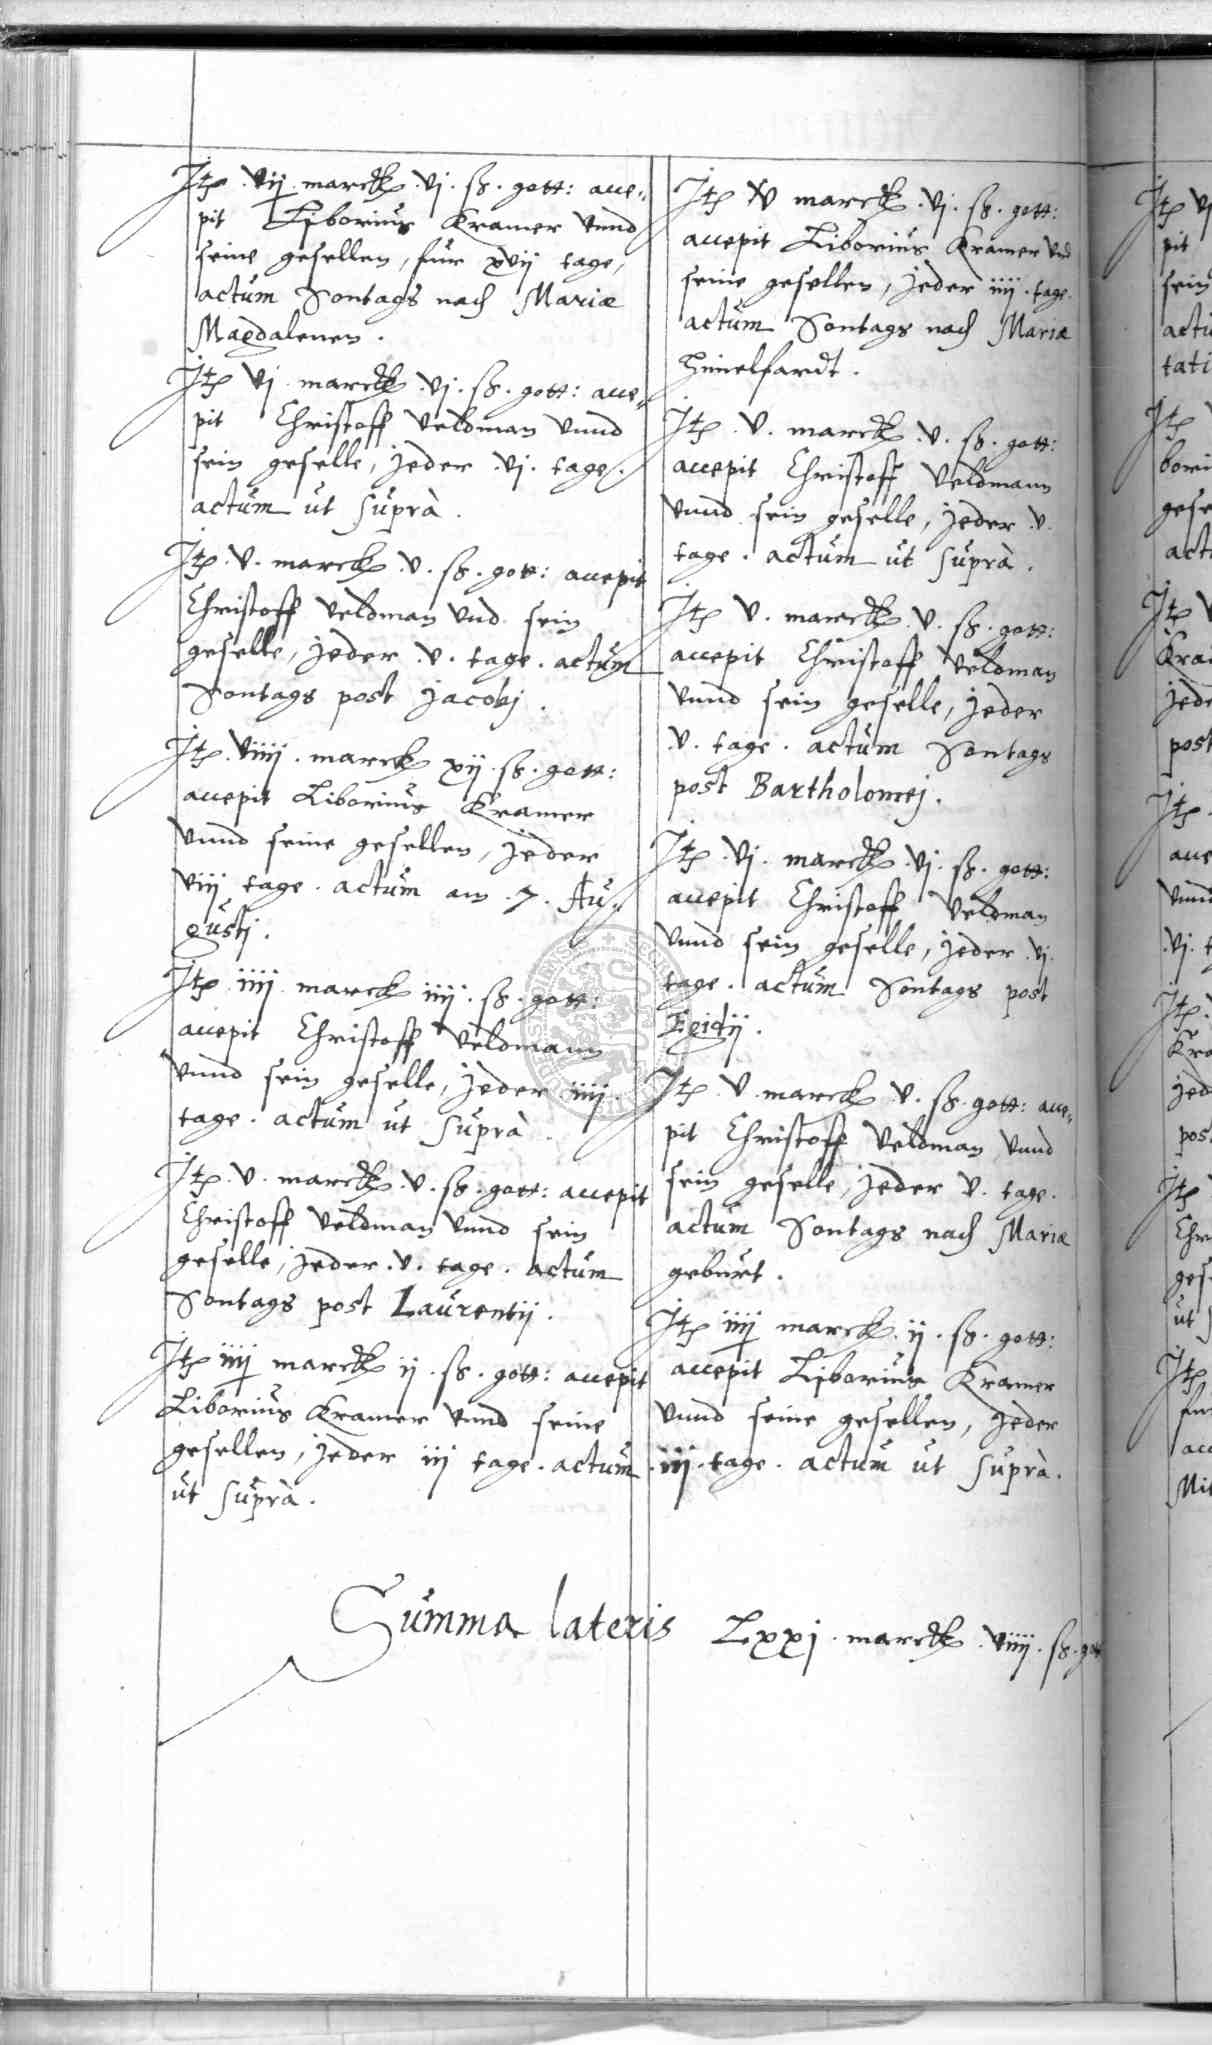 Itē vij marck vj. ß. gott: acce-
pit Liborius Kramer vnnd
seine gesellen, fur xvij tage,
actum Sontags nach Mariæ
Magdalenen.
Itē vj marck vj. ß. gott: acce-
pit Christoff Veldman vnnd
sein geselle, jeder vj. tage.
actum ut suprà.
Itē v. marck v. ß. gott: accepit
Christoff Veldman vnd sein
geselle, jeder v. tage. actum
Sontags post Jacobj.
Itē viiij. marck xij ß. gott:
accepit Liborius Kramer
vnnd seine gesellen, jeder
viij tage. actum am .7. Au-
gusti.
Itē iiij marck iiij. ß. gott:
accepit Christoff Veldmann
vnnd sein geselle, jeder iiij.
tage. actum ut suprà.
Itē v. marck v. ß. gott: accepit
Christoff Veldman vnnd sein
geselle, jeder v. tage. actum
Sontags post Laurentij.
Itē iiij marck ij ß. gott: accepit
Liborius Kramer vnnd seine
gesellen, jeder iij tage. actum
ut suprà.
Itē v marck vj. ß. gott:
accepit Liborius Kramer vnd
seine gesellen, jeder iiij. tage.
actum Sontags nach Mariæ
Himelfardt.
Itē v. marck v. ß. gott:
accepit Christoff Veldmann
vnnd sein geselle, jeder v.
tage. actum ut suprà.
Itē v. marck v. ß. gott:
accepit Christoff Veldman
vnnd sein geselle, jeder
v. tage. actum Sontags
post Bartholomej.
Itē vj. marck vj. ß. gott:
accepit Christoff Veldman
vnnd sein geselle, jeder vj.
tage. actum Sontags post
Egidij.
Itē v. marck v. ß. gott: acce-
pit Christoff Veldman vnnd
sein geselle, jeder v. tage.
actum Sontags nach Mariæ
geburt.
Itē iiij marck ij. ß. gott:
accepit Liborius Kramer
vnnd seine gesellen, jeder
iij. tage. actum ut suprà.
Summa lateris Lxxj. marck viiij. ß. gott